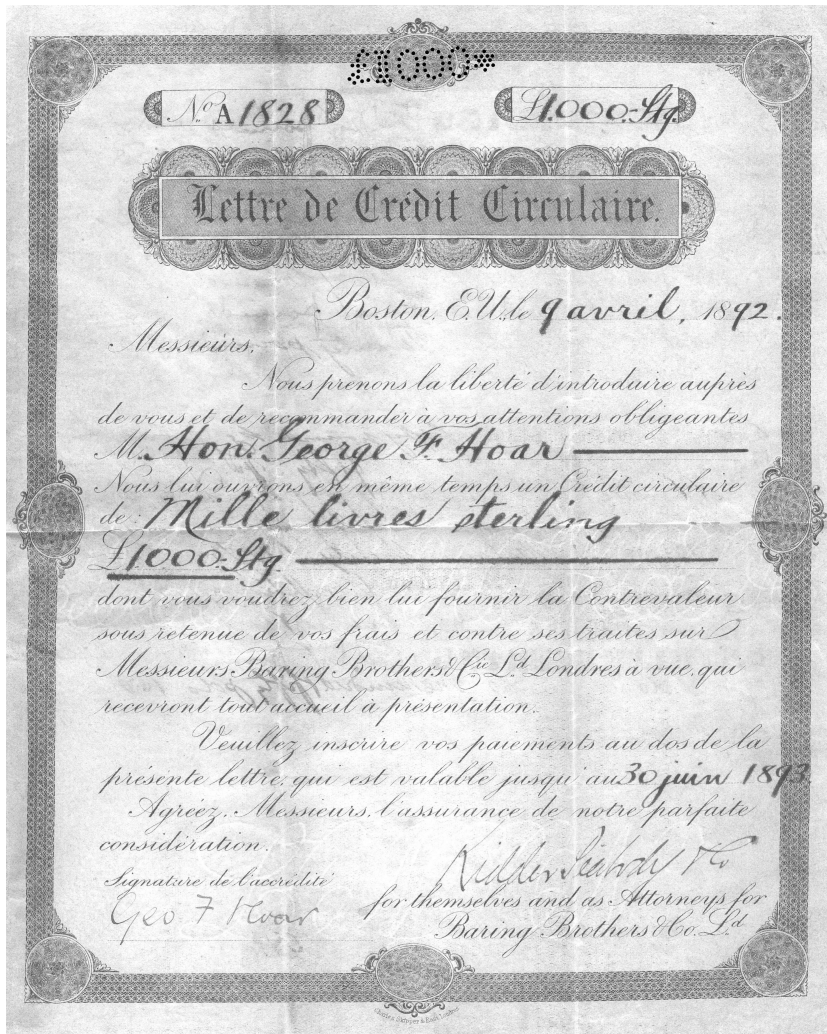 £1000*
No. A1828 £1.000.-Stg.
Lettre de Crédit Circulaire.
Boston, E.U., le 9 avril, 1892.
Messieurs,
Nous prenons la liberté d'introduire auprès
de vous et de recommander à vos attentions obligeantes
M. Hon. George F. Hoar
Nous lui ouvrons en même temps un Crédit circulaire
de: Mille livres sterling
£1000.-Stg
dont vous voudrez bien lui fournir la Contrevaleur
sous retenue de vos frais et contre ses traites sur
Messieurs Baring Brothers & Cie Ld. Londres à vue, qui
recevront tout accueil à présentation.
Veuillez inscrire vos paiements au dos de la
présente lettre, qui est valable jusqu'au 30 juin 1893
Agréez, Messieurs, l'assurance de notre parfaite
considération.
Kidder Peabody & Co
Signature de l'accrédité
Geo F Hoar
for themselves and as Attorneys for
Baring Brothers & Co. Ld.
Charles Skipper & East, London